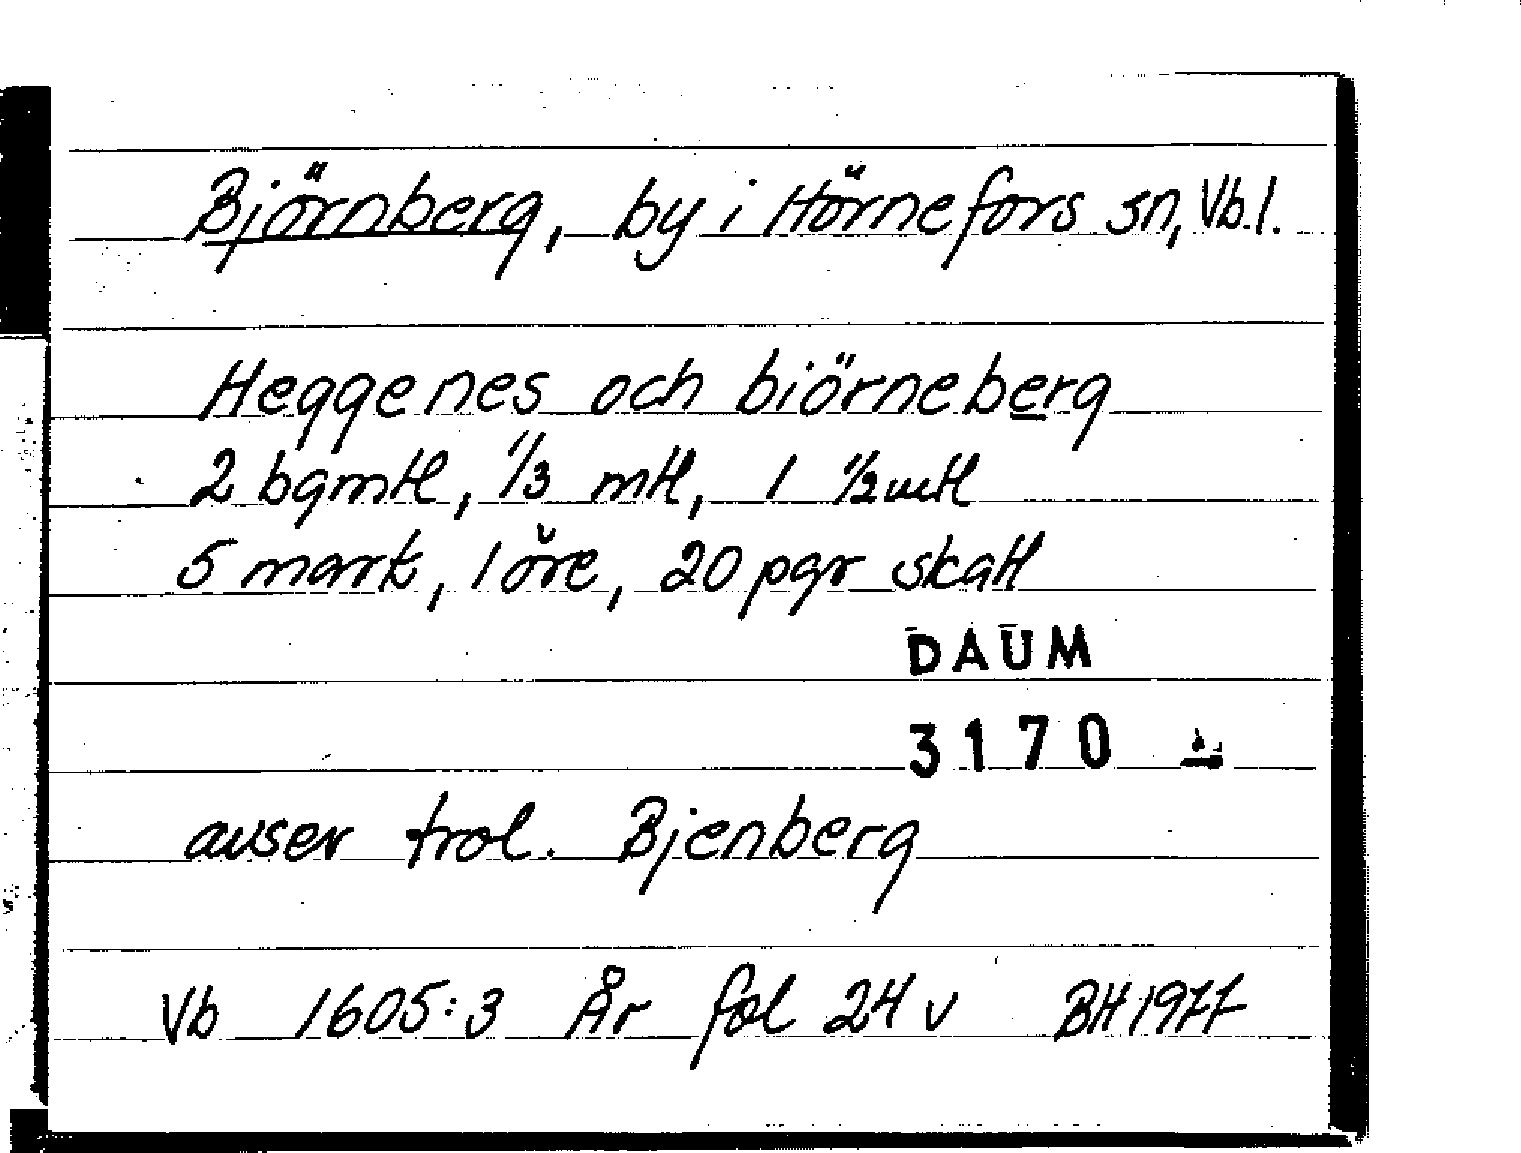 Björnberg, by i Hörnefors sn, Vb. l.
Heggenes och biörneberg
2 bgmtl, 1/3 mtl, 1 1/2 mtl
5 mark, 1 öre, 20 pgr skatt
DAUM
3170
avser trol. Bjenberg
Vb 1605:3 År fol 24 v BH 1977